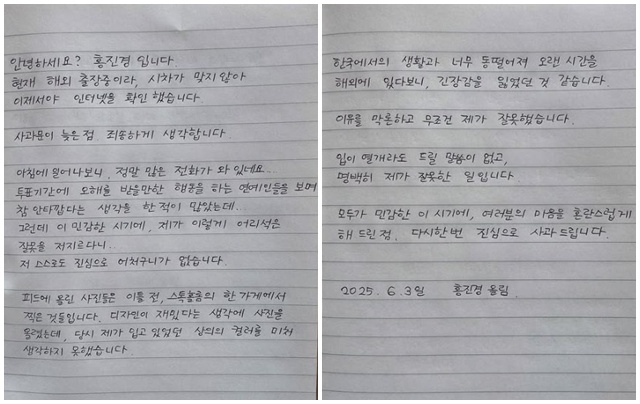 안녕하세요? 홍진경 입니다
현재 해외 출장중이라, 시차가 맞지않아
이제서야 인터넷을 확인 했습니다.
사과문이 늦은점 죄송하게 생각합니다
아침에 일어나보니, 정말 많은 전화가 와 있네요...
투표기간에 오해를 받을만한 행동을 하는 연예인들을 보며
참 안타깝다는 생각을 한 적이 많았는데...
그런데 이 민감한 시기에, 제가 이렇게 어리석은
잘못을 저지르다니...
저 스스로도 진심으로 어처구니가 없습니다.
피드에 올린 사진들은 이틀 전, 스톡홀름의 한 가게에서
찍은 것들입니다. 디자인이 재밌다는 생각에 사진을
올렸는데, 당시 제가 입고 있었던 상의의 컬러를 미처
생각하지 못했습니다.
한국에서의 생활과 너무 동떨어져 오랜 시간을
해외에 있다보니, 긴장감을 잃었던 것 같습니다.
이유를 막론하고 무조건 제가 잘못했습니다.
입이 열개라도 드릴 말씀이 없고,
명백히 제가 잘못한 일입니다.
모두가 민감한 이 시기에, 여러분의 마음을 혼란스럽게
해 드린 점, 다시한번 진심으로 사과드립니다.
2025. 6. 3일 홍진경 올림